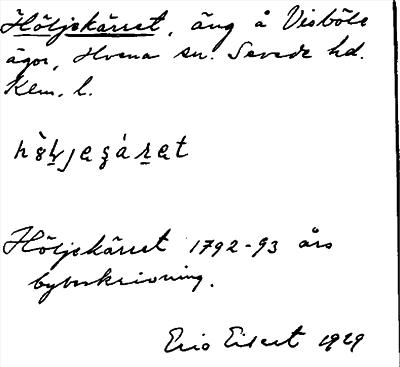 Höljekärret, äng å Visböle
ägor, Hvena sn. Sevede hd.
Klm. l.
Höljekärret 1792-93 års
bybeskrivning.
Eric Elsert 1929